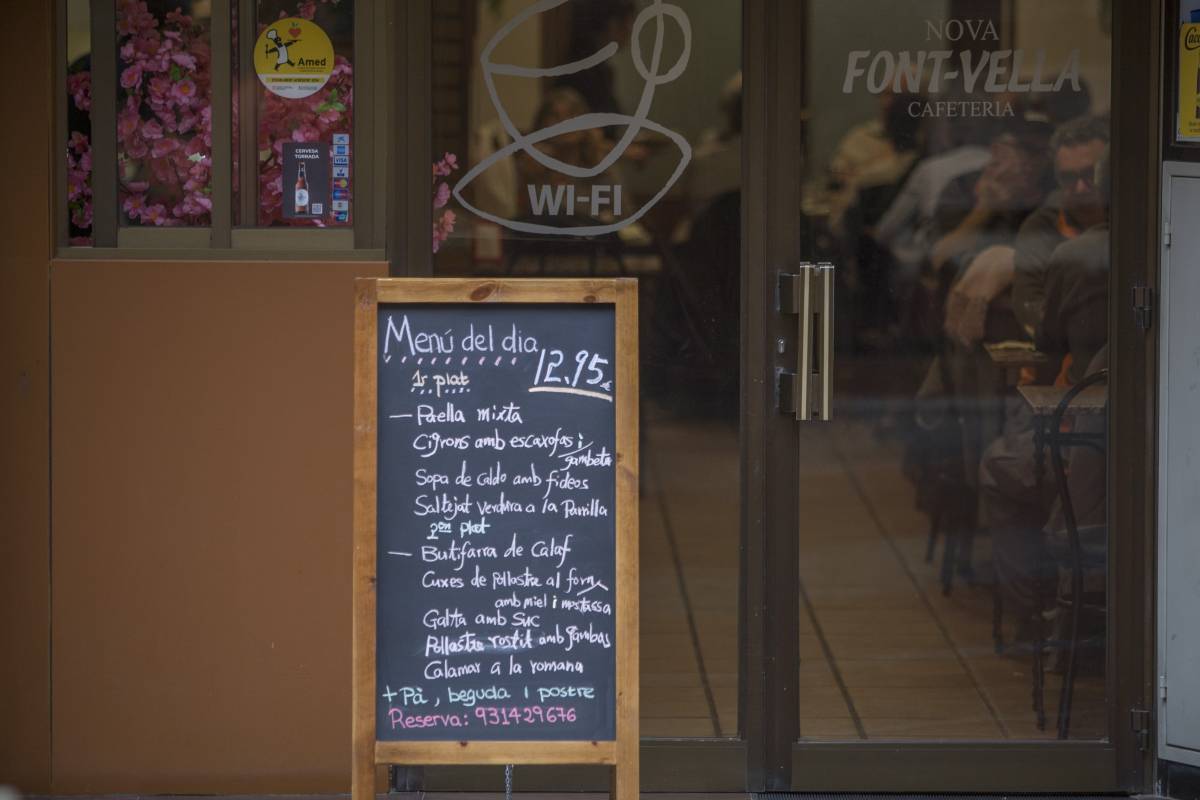 Amed
CERVESA
TORRADA
VISA
WI-FI
NOVA
FONT-VELLA
CAFETERIA
Menú del dia
12.95
1r plat
— Paella mixta
Cigrons amb escaxofas i
gambeta
Sopa de caldo amb fideos
Saltejat verdura a la Parrilla
2on plat
— Butifarra de Calaf
Cuxes de pollastre al forn
amb miel i mostassa
Galta amb suc
Pollastre rostit amb gambas
Calamar a la romana
+ Pà, beguda i postre
Reserva: 931429676